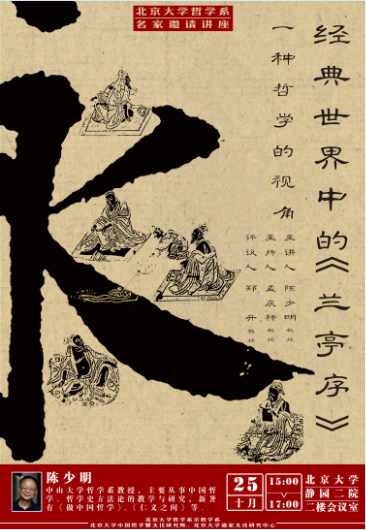 北京大学哲学系
名家邀请讲座
经典世界中的《兰亭序》
一种哲学的视角
主讲人 陈少明 教授
主持人 孟庆楠 教授
评议人 郑开 教授
永
陈少明
中山大学哲学系教授，主要从事中国哲
学、哲学史方法论的教学与研究，新著
有《做中国哲学》、《仁义之间》等。
25
十月
15:00
17:00
北京大学
静园二院
二楼会议室
北京大学哲学系宗教学系
北京大学中国哲学暨文化研究所、北京大学 家文化研究中心